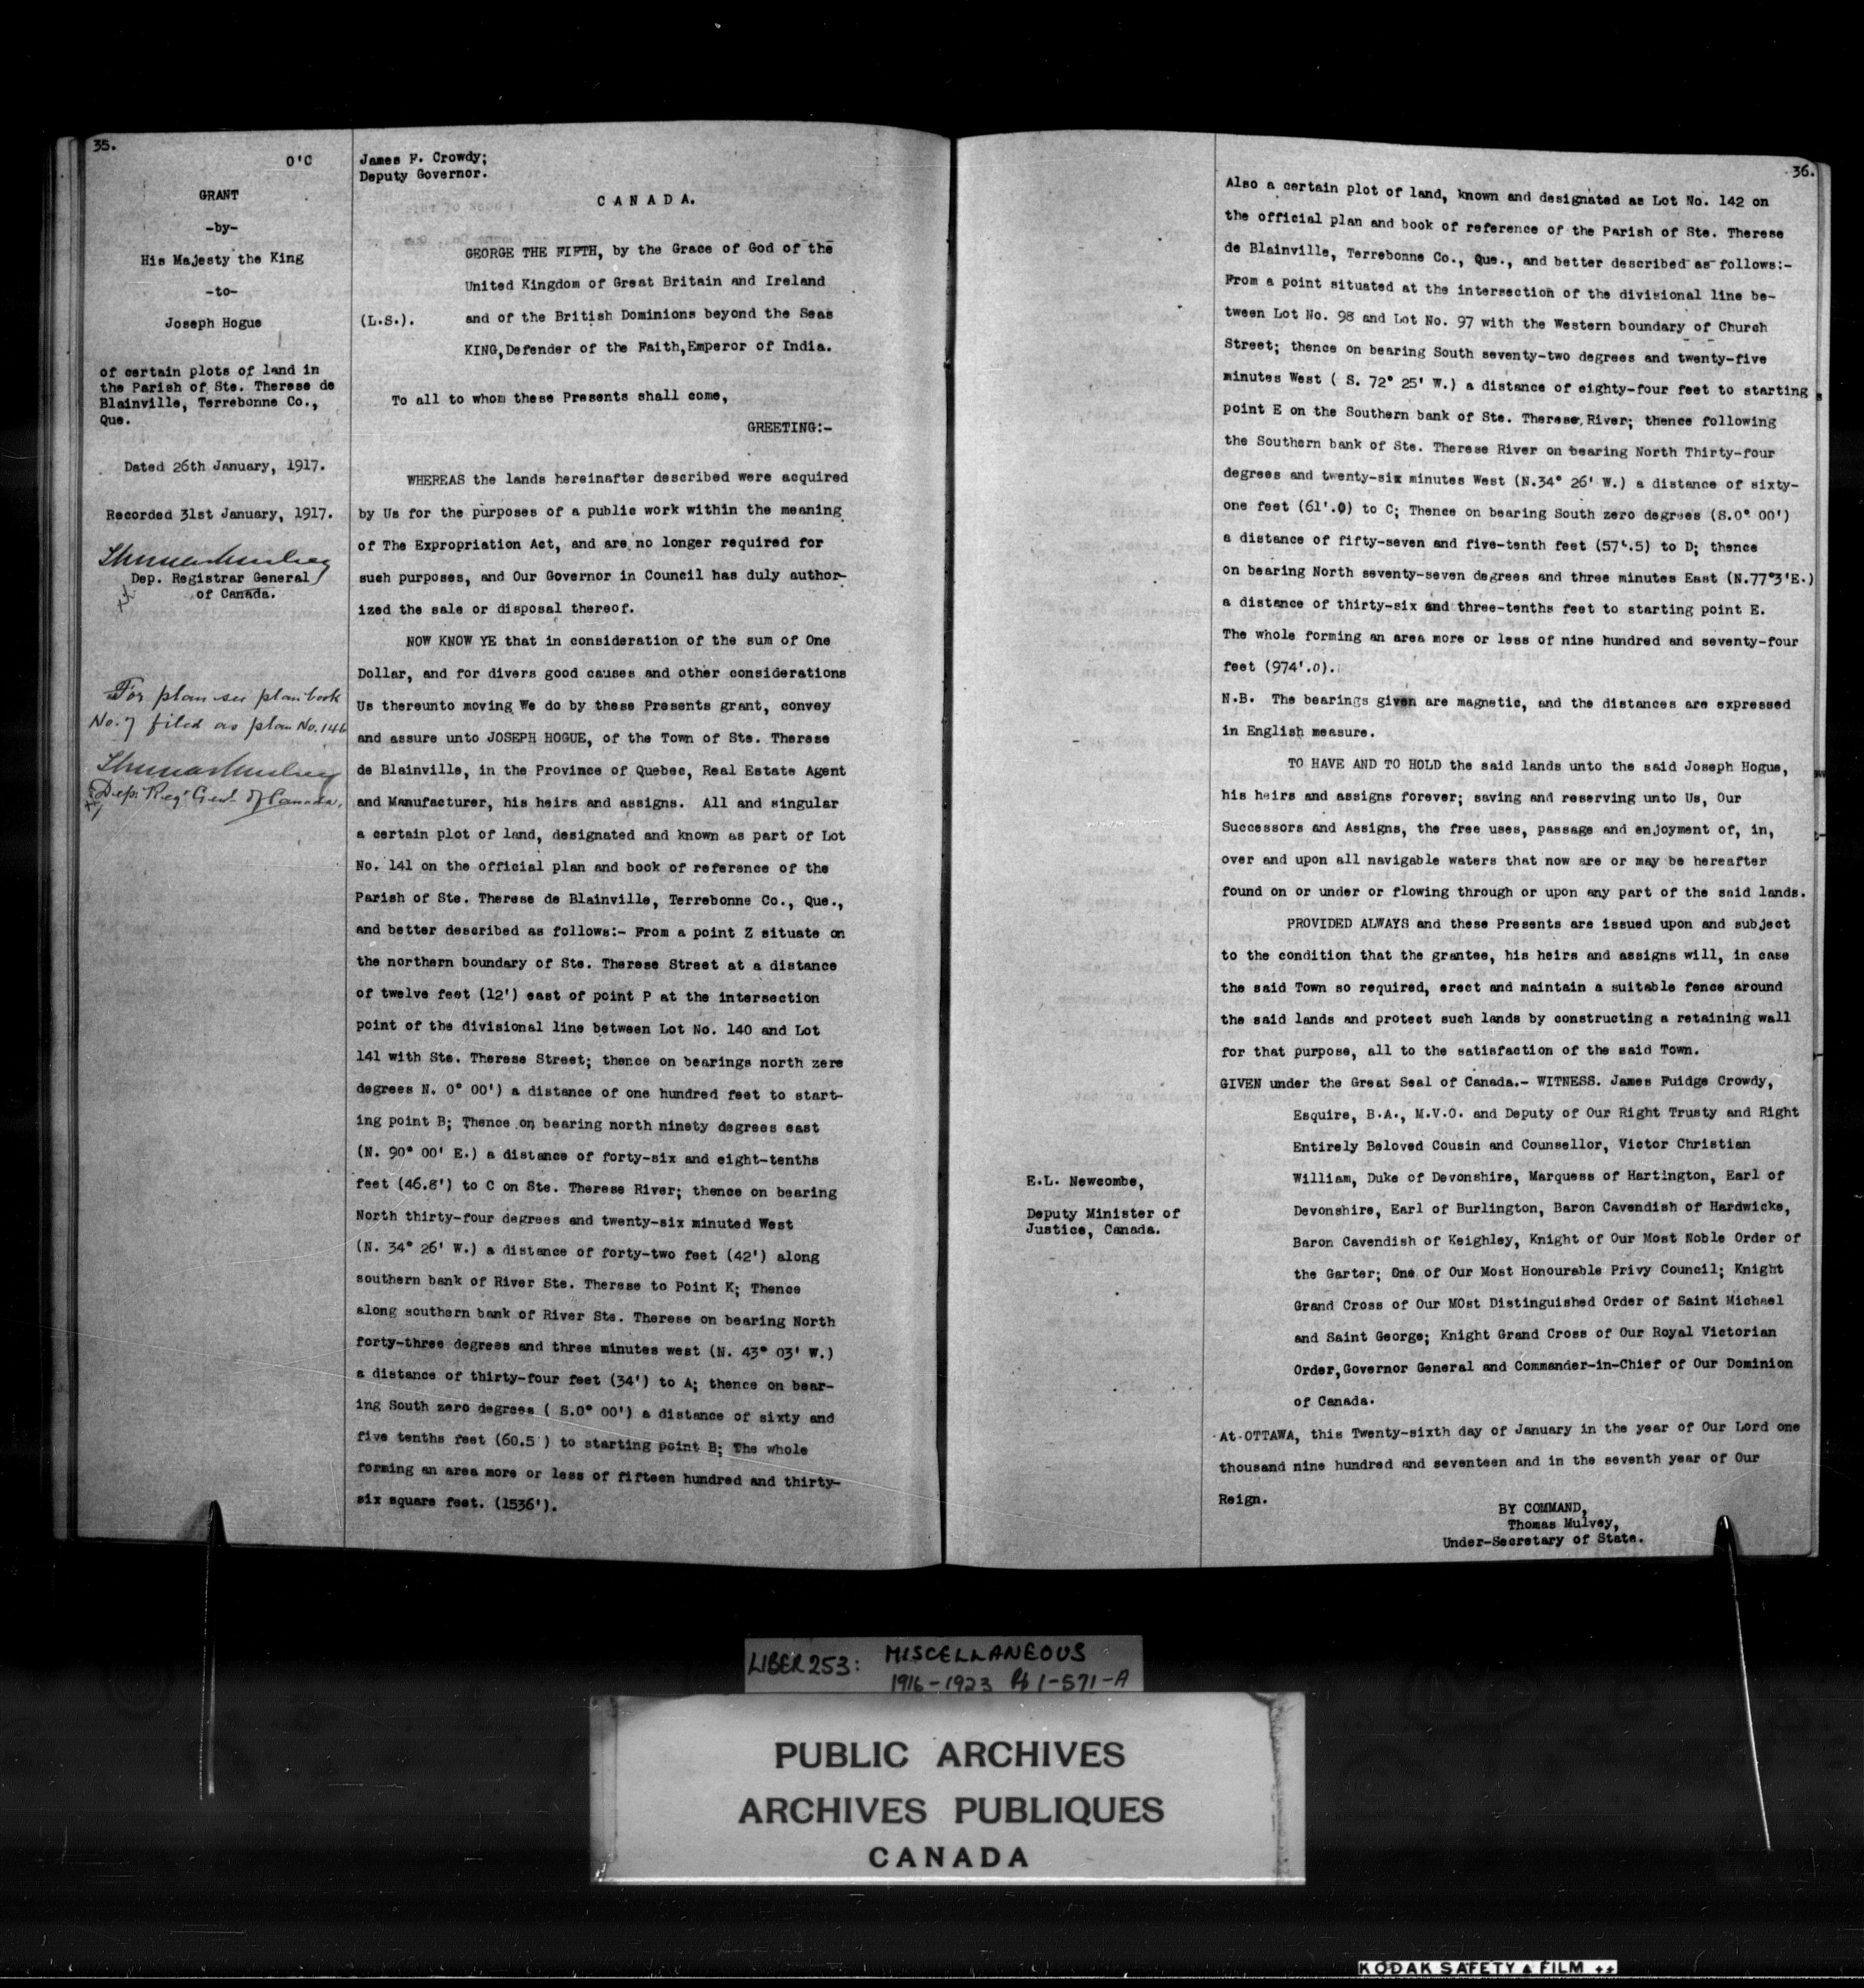 35.
O'C
GRANT
-by-
His Majesty the King
-to-
Joseph Hogue
of certain plots of land in
the Parish of Ste. Therese de
Blainville, Terrebonne Co.,
Que.
Dated 26th January, 1917.
Recorded 31st January, 1917.
Dep. Registrar General
of Canada.
For plan see plan book
No. 7 filed as plan No. 146
Dep. Reg. Genl. of Canada.
James F. Crowdy;
Deputy Governor.
C A N A D A.
GEORGE THE FIFTH, by the Grace of God of the
United Kingdom of Great Britain and Ireland
(L.S.). and of the British Dominions beyond the Seas
KING,Defender of the Faith,Emperor of India.
To all to whom these Presents shall come,
GREETING:-
WHEREAS the lands hereinafter described were acquired
by Us for the purposes of a public work within the meaning
of The Expropriation Act, and are no longer required for
such purposes, and Our Governor in Council has duly author-
ized the sale or disposal thereof.
NOW KNOW YE that in consideration of the sum of One
Dollar, and for divers good causes and other considerations
Us thereunto moving We do by these Presents grant, convey
and assure unto JOSEPH HOGUE, of the Town of Ste. Therese
de Blainville, in the Province of Quebec, Real Estate Agent
and Manufacturer, his heirs and assigns. All and singular
a certain plot of land, designated and known as part of Lot
No. 141 on the official plan and book of reference of the
Parish of Ste. Therese de Blainville, Terrebonne Co., Que.,
and better described as follows:- From a point Z situate on
the northern boundary of Ste. Therese Street at a distance
of twelve feet (12') east of point P at the intersection
point of the divisional line between Lot No. 140 and Lot
141 with Ste. Therese Street; thence on bearings north zere
degrees N. 0° 00') a distance of one hundred feet to start-
ing point B; Thence on bearing north ninety degrees east
(N. 90° 00' E.) a distance of forty-six and eight-tenths
feet (46.8') to C on Ste. Therese River; thence on bearing
North thirty-four degrees and twenty-six minuted West
(N. 34° 26' W.) a distance of forty-two feet (42') along
southern bank of River Ste. Therese to Point K; Thence
along southern bank of River Ste. Therese on bearing North
forty-three degrees and three minutes west (N. 43° 03' W.)
a distance of thirty-four feet (34') to A; thence on bear-
ing South zero degrees ( S.0° 00') a distance of sixty and
five tenths feet (60.5 ) to starting point B; The whole
forming an area more or less of fifteen hundred and thirty-
six square feet. (1536').
36.
Also a certain plot of land, known and designated as Lot No. 142 on
the official plan and book of reference of the Parish of Ste. Therese
de Blainville, Terrebonne Co., Que., and better described as follows:-
From a point situated at the intersection of the divisional line be-
tween Lot No. 98 and Lot No. 97 with the Western boundary of Church
Street; thence on bearing South seventy-two degrees and twenty-five
minutes West ( S. 72° 25' W.) a distance of eighty-four feet to starting
point E on the Southern bank of Ste. Therese River; thence following
the Southern bank of Ste. Therese River on bearing North Thirty-four
degrees and twenty-six minutes West (N.34° 26' W.) a distance of sixty-
one feet (61'.0) to C; Thence on bearing South zero degrees (S.0° 00')
a distance of fifty-seven and five-tenth feet (57'.5) to D; thence
on bearing North seventy-seven degrees and three minutes East (N.77°3'E.)
a distance of thirty-six and three-tenths feet to starting point E.
The whole forming an area more or less of nine hundred and seventy-four
feet (974'.0).
N.B. The bearings given are magnetic, and the distances are expressed
in English measure.
TO HAVE AND TO HOLD the said lands unto the said Joseph Hogue,
his heirs and assigns forever; saving and reserving unto Us, Our
Successors and Assigns, the free uses, passage and enjoyment of, in,
over and upon all navigable waters that now are or may be hereafter
found on or under or flowing through or upon any part of the said lands.
PROVIDED ALWAYS and these Presents are issued upon and subject
to the condition that the grantee, his heirs and assigns will, in case
the said Town so required, erect and maintain a suitable fence around
the said lands and protect such lands by constructing a retaining wall
for that purpose, all to the satisfaction of the said Town.
GIVEN under the Great Seal of Canada.- WITNESS. James Fuidge Crowdy,
Esquire, B.A., M.V.O. and Deputy of Our Right Trusty and Right
Entirely Beloved Cousin and Counsellor, Victor Christian
William, Duke of Devonshire, Marquess of Hartington, Earl of
Devonshire, Earl of Burlington, Baron Cavendish of Hardwicke,
Baron Cavendish of Keighley, Knight of Our Most Noble Order of
the Garter; One of Our Most Honourable Privy Council; Knight
Grand Cross of Our MOst Distinguished Order of Saint Michael
and Saint George; Knight Grand Cross of Our Royal Victorian
Order,Governor General and Commander-in-Chief of Our Dominion
of Canada.
E.L. Newcombe,
Deputy Minister of
Justice, Canada.
At OTTAWA, this Twenty-sixth day of January in the year of Our Lord one
thousand nine hundred and seventeen and in the seventh year of Our
Reign.
BY COMMAND,
Thomas Mulvey,
Under-Secretary of State.
LIBER 253: MISCELLANEOUS
1916-1923 Pt 1-571-A
PUBLIC ARCHIVES
ARCHIVES PUBLIQUES
CANADA
KODAK SAFETY FILM